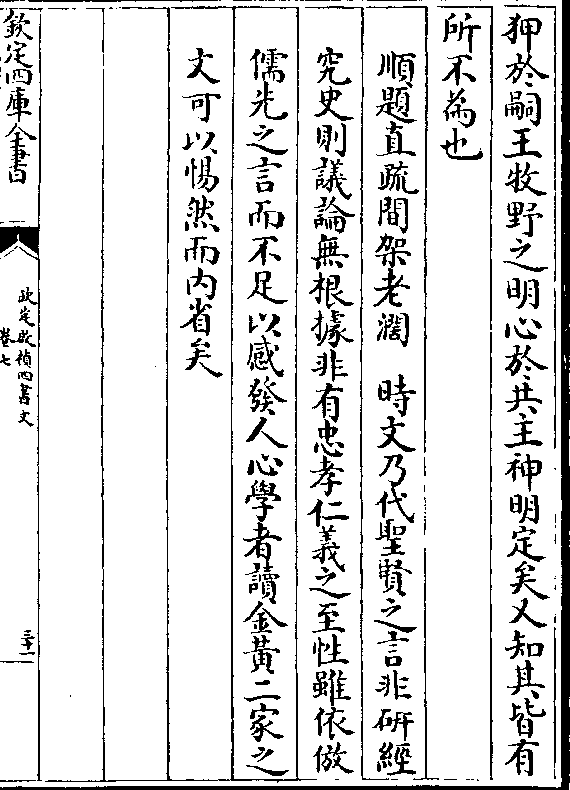 狎於嗣王牧野之明心於共主神明定矣人知其皆有
所不為也
順題直疏間架老濶　時文乃代聖賢之言非研經
究史則議論無根據非有忠孝仁義之至性雖依倣
儒先之言而不足以感發人心學者讀金黃二家之
文可以惕然而内省矣
欽定四庫全書
欽定啟禎四書文
卷七
三十一